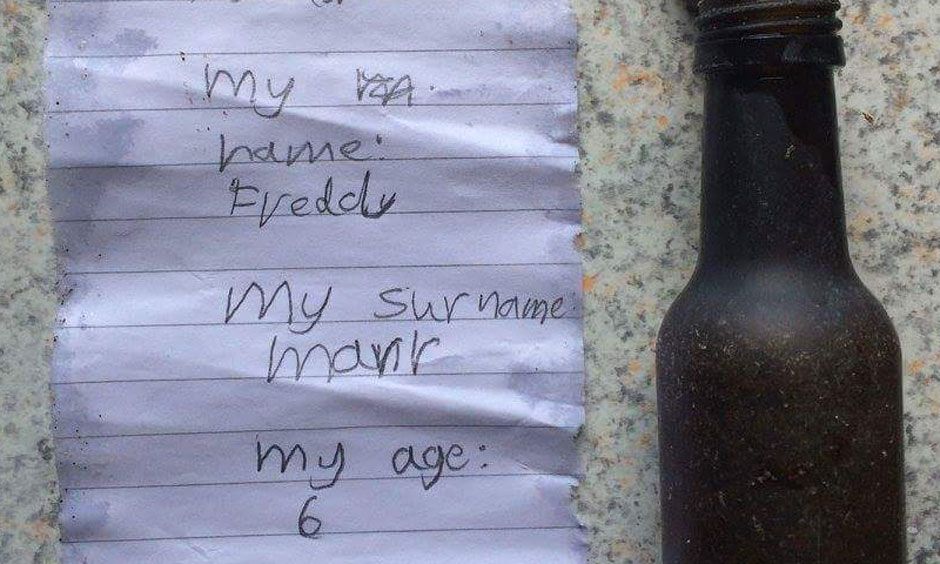 My
name:
Freddy
My surname:
my age:
6